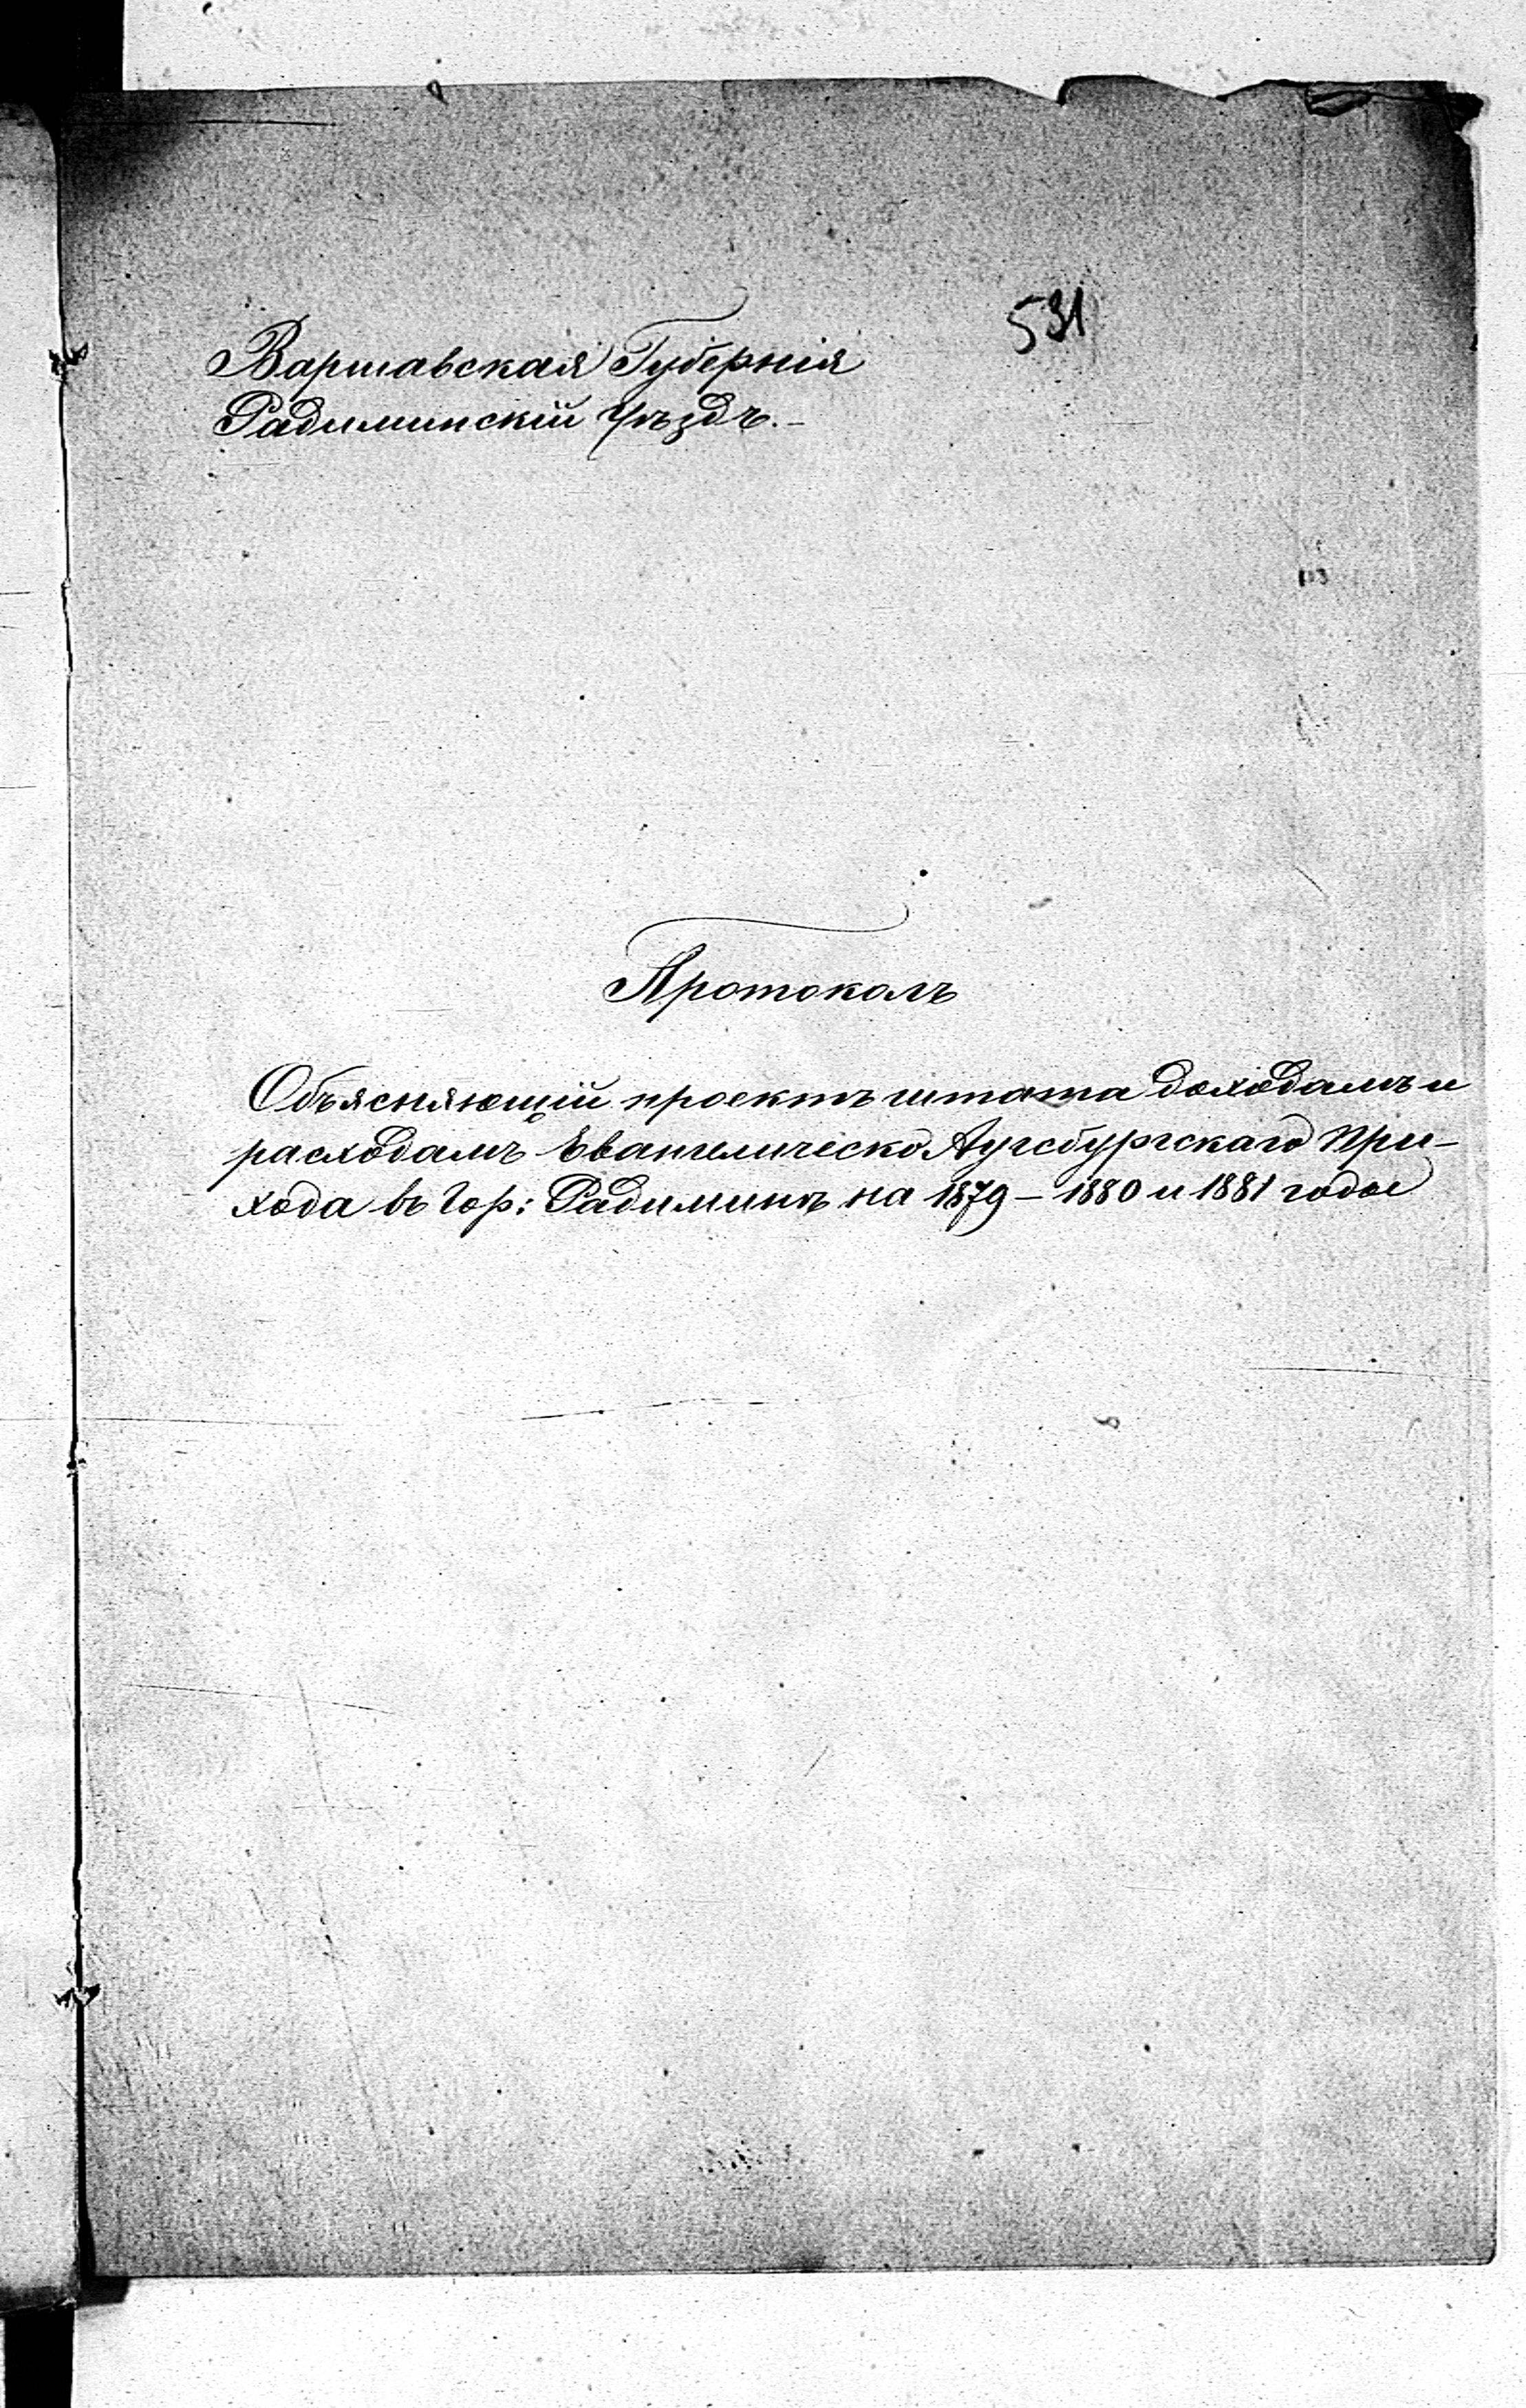 531
Варшавская Губернія
Радиминскій Уѣздъ.-
Протоколъ
Объясняющій проектъ штата доходамъ и
расходамъ Евангелическо Аугсбургскаго При-
хода въ Гор: Радиминѣ на 1879 – 1880 и 1881 годы